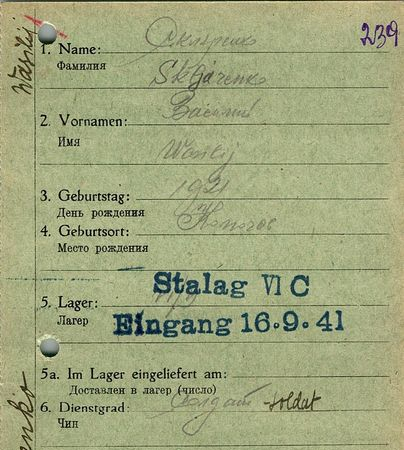 Wasilij
239
1. Name: Скляренко
Фамилия Skljarenko
2. Vornamen: Василий
Имя
Wasilij
3. Geburtstag: 1921
День рождения
4. Geburtsort:
Место рождения
Stalag VI C
5. Lager:
Лагерь
Eingang 16.9.41
5a. Im Lager eingeliefert am:
Доставлен в лагер (число)
6. Dienstgrad: Солдат - soldat
Чин
enko